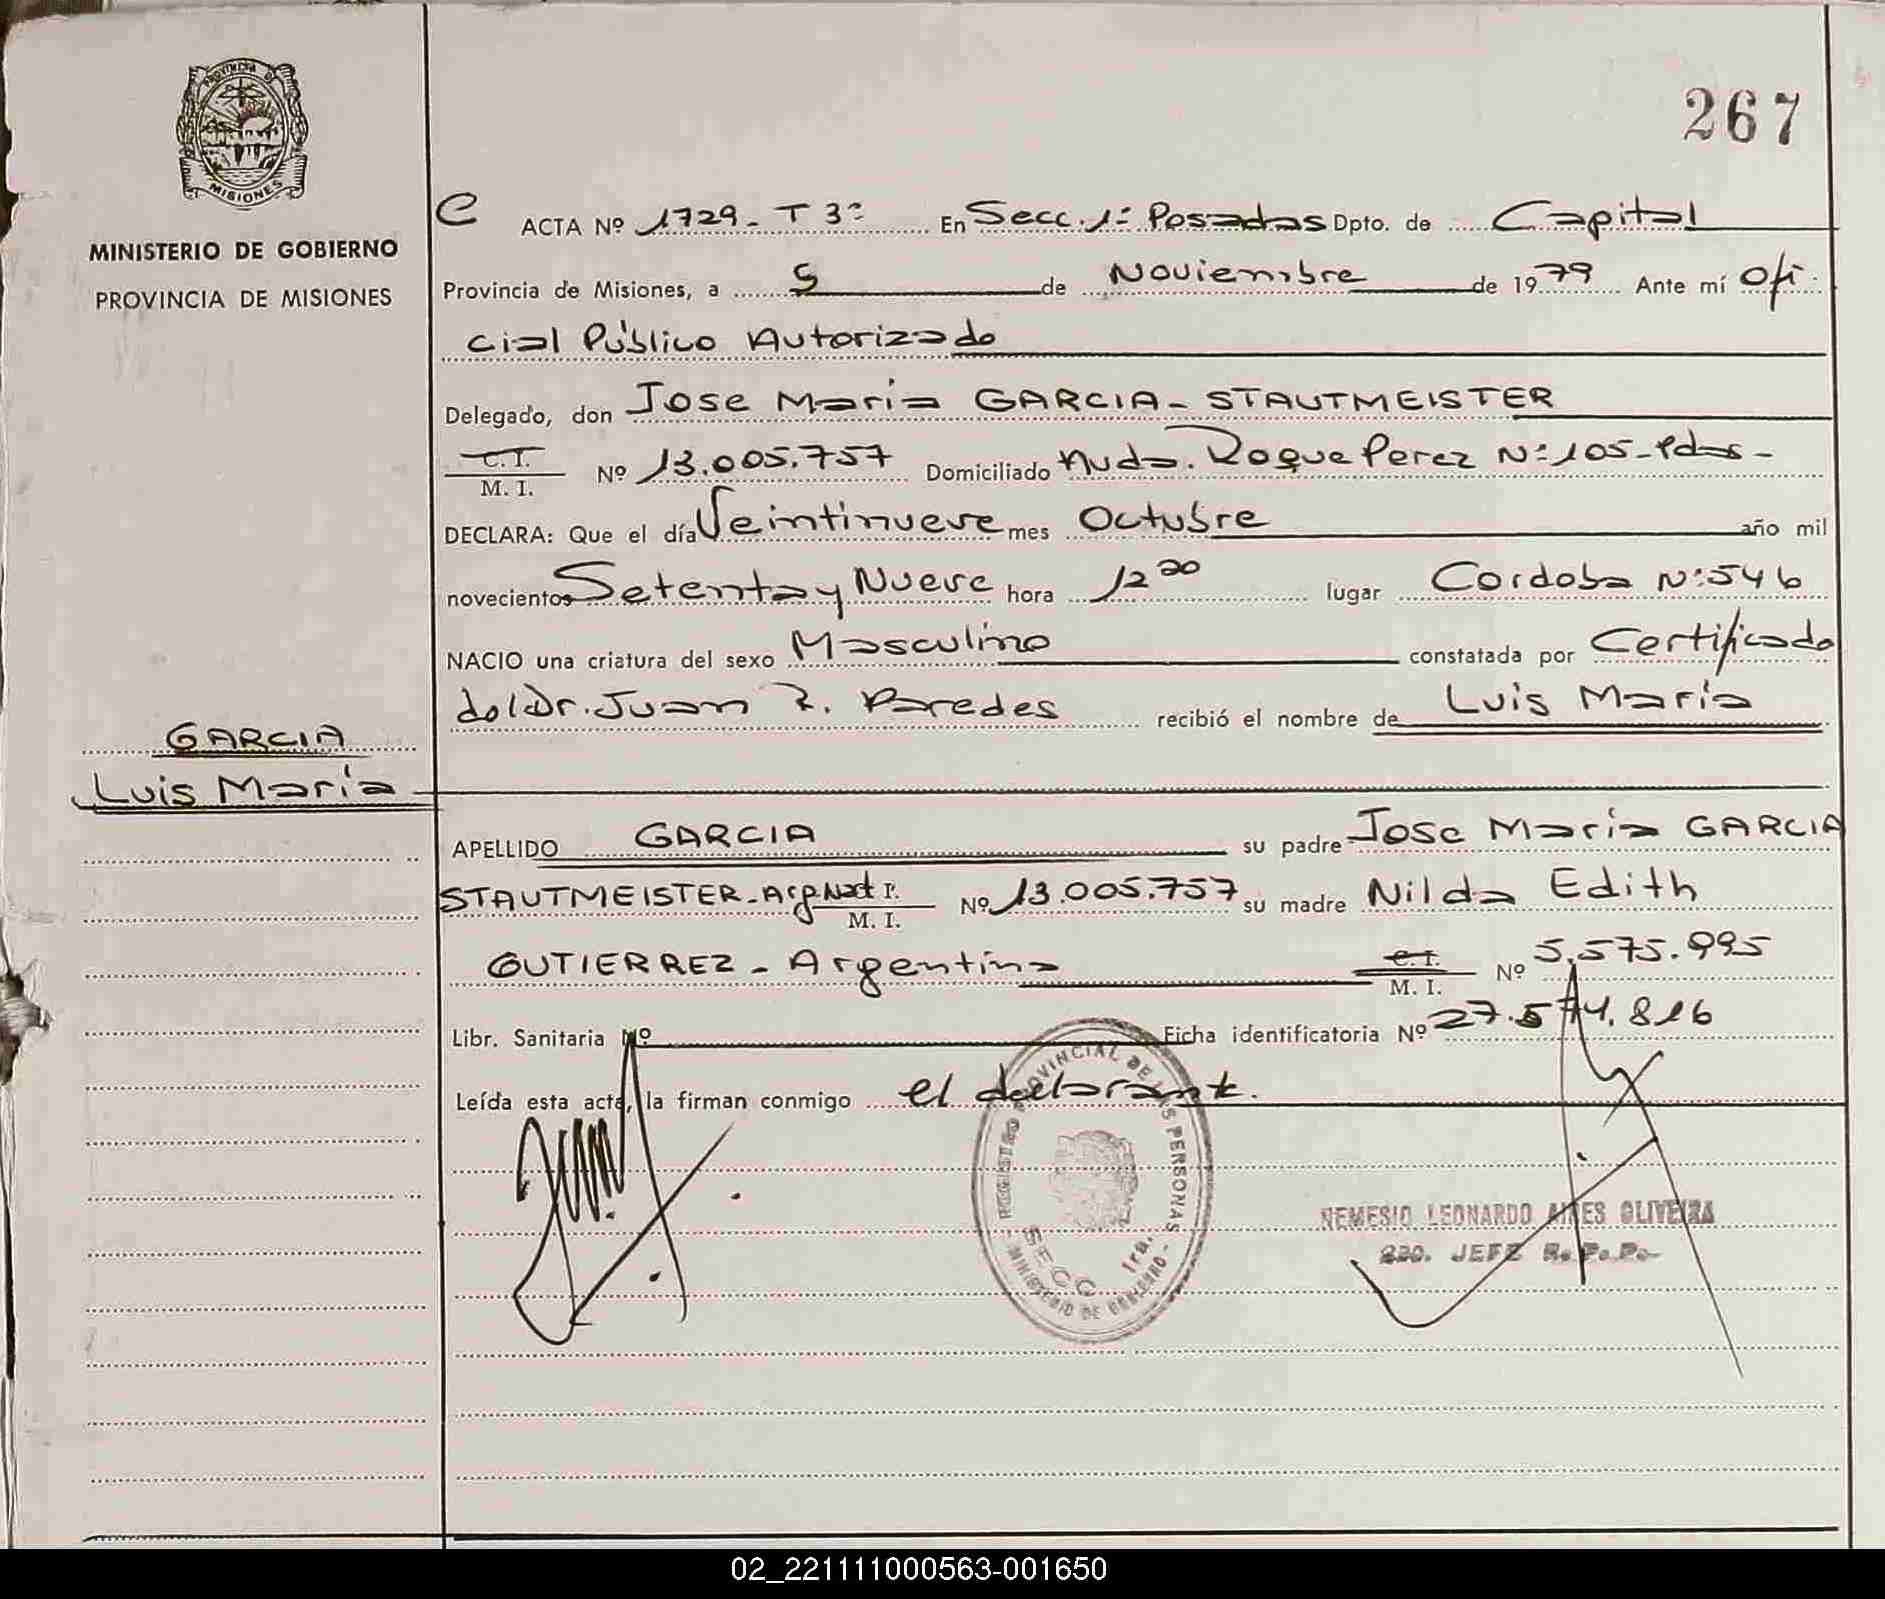 PROVINCIA DE
MISIONES
MINISTERIO DE GOBIERNO
PROVINCIA DE MISIONES
267
C ACTA Nº 1729 - T 3º En Secc. 1ª Posadas Dpto. de Capital
Provincia de Misiones, a 5 de Noviembre de 1979 Ante mí Ofi
cial Público Autorizado
Delegado, don Jose Maria GARCIA - STAUTMEISTER
C. I.
M. I. Nº 13.005.757 Domiciliado Avda. Roque Perez Nº 105 - Pdas -
DECLARA: Que el día Veintinueve mes Octubre año mil
novecientos Setenta y Nueve hora 12 20 lugar Cordoba Nº 546
NACIO una criatura del sexo Masculino constatada por Certificado
del Dr. Juan R. Paredes recibió el nombre de Luis María
GARCIA
Luis María
APELLIDO GARCIA su padre Jose María GARCIA
STAUTMEISTER - Arg. Nat. I.
M. I. Nº 13.005.757 su madre Nilda Edith
GUTIERREZ - Argentina C. I.
M. I. Nº 5.575.995
Libr. Sanitaria Nº Ficha identificatoria Nº 27.574.816
Leída esta acta, la firman conmigo el declarante.
REGISTRO PROVINCIAL DE LAS PERSONAS
SECC 1ra.
- MINISTERIO DE GOBIERNO -
NEMESIO LEONARDO AIRES OLIVEIRA
2do. JEFE R. P. P.
02_221111000563-001650